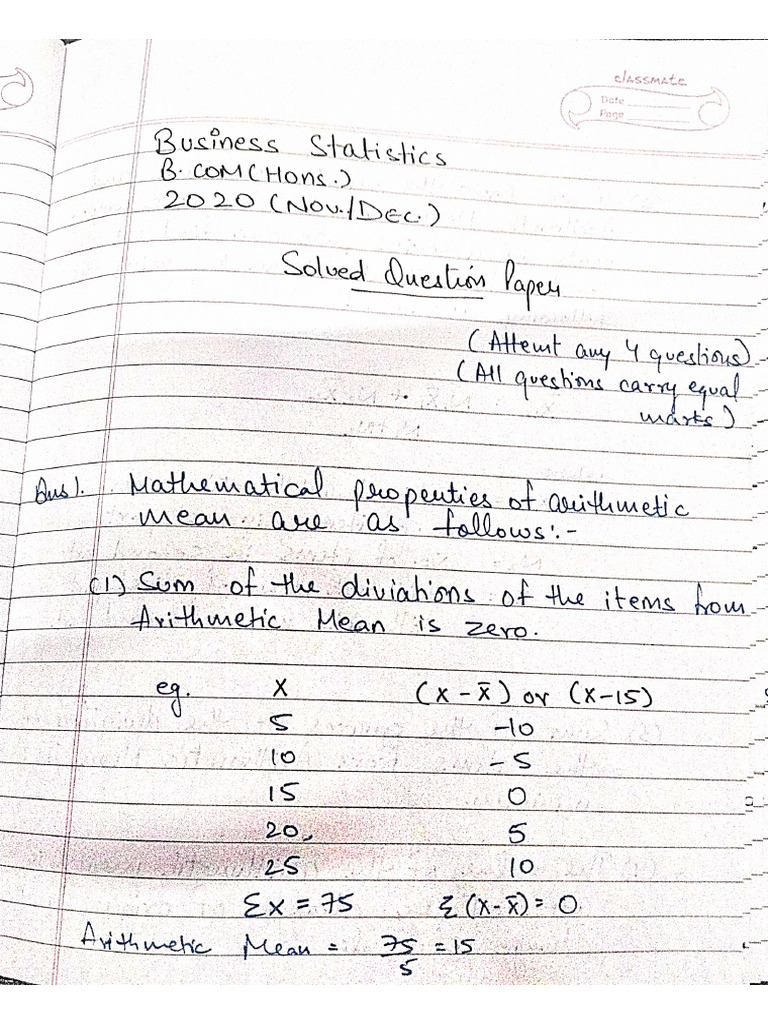 classmate
Date
Page
Business Statistics
B. COM (Hons.)
2020 (Nov./Dec.)
Solved Question Paper
(Attemt any 4 questions)
(All questions carry equal
marks)
Ans1. Mathematical properties of arithmetic
mean are as follows:-
(1) Sum of the diviations of the items from
Arithmetic Mean is zero.
eg. X (X-X̄) or (X-15)
5 -10
10 -5
15 0
20, 5
25 10
Σx = 75 Σ(X-X̄) = 0
Arithmetic Mean = 75/5 = 15